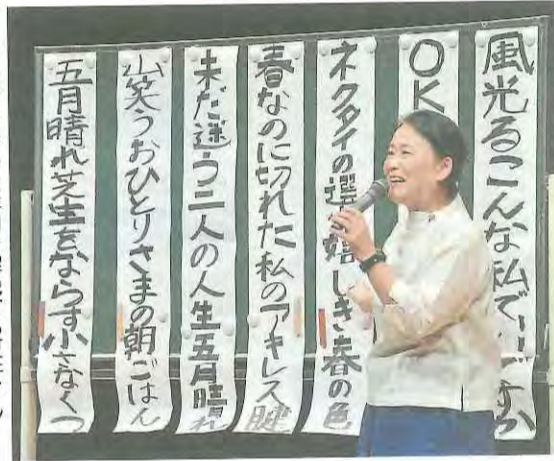 風光るこんな私でいいですか
OK
ネクタイの選 嬉しき春の色
春なのに切れた私のアキレス腱
未だ迷う二人の人生五月晴れ
山笑うおひとりさまの朝ごはん
五月晴れ芝生をならす小さなくつ